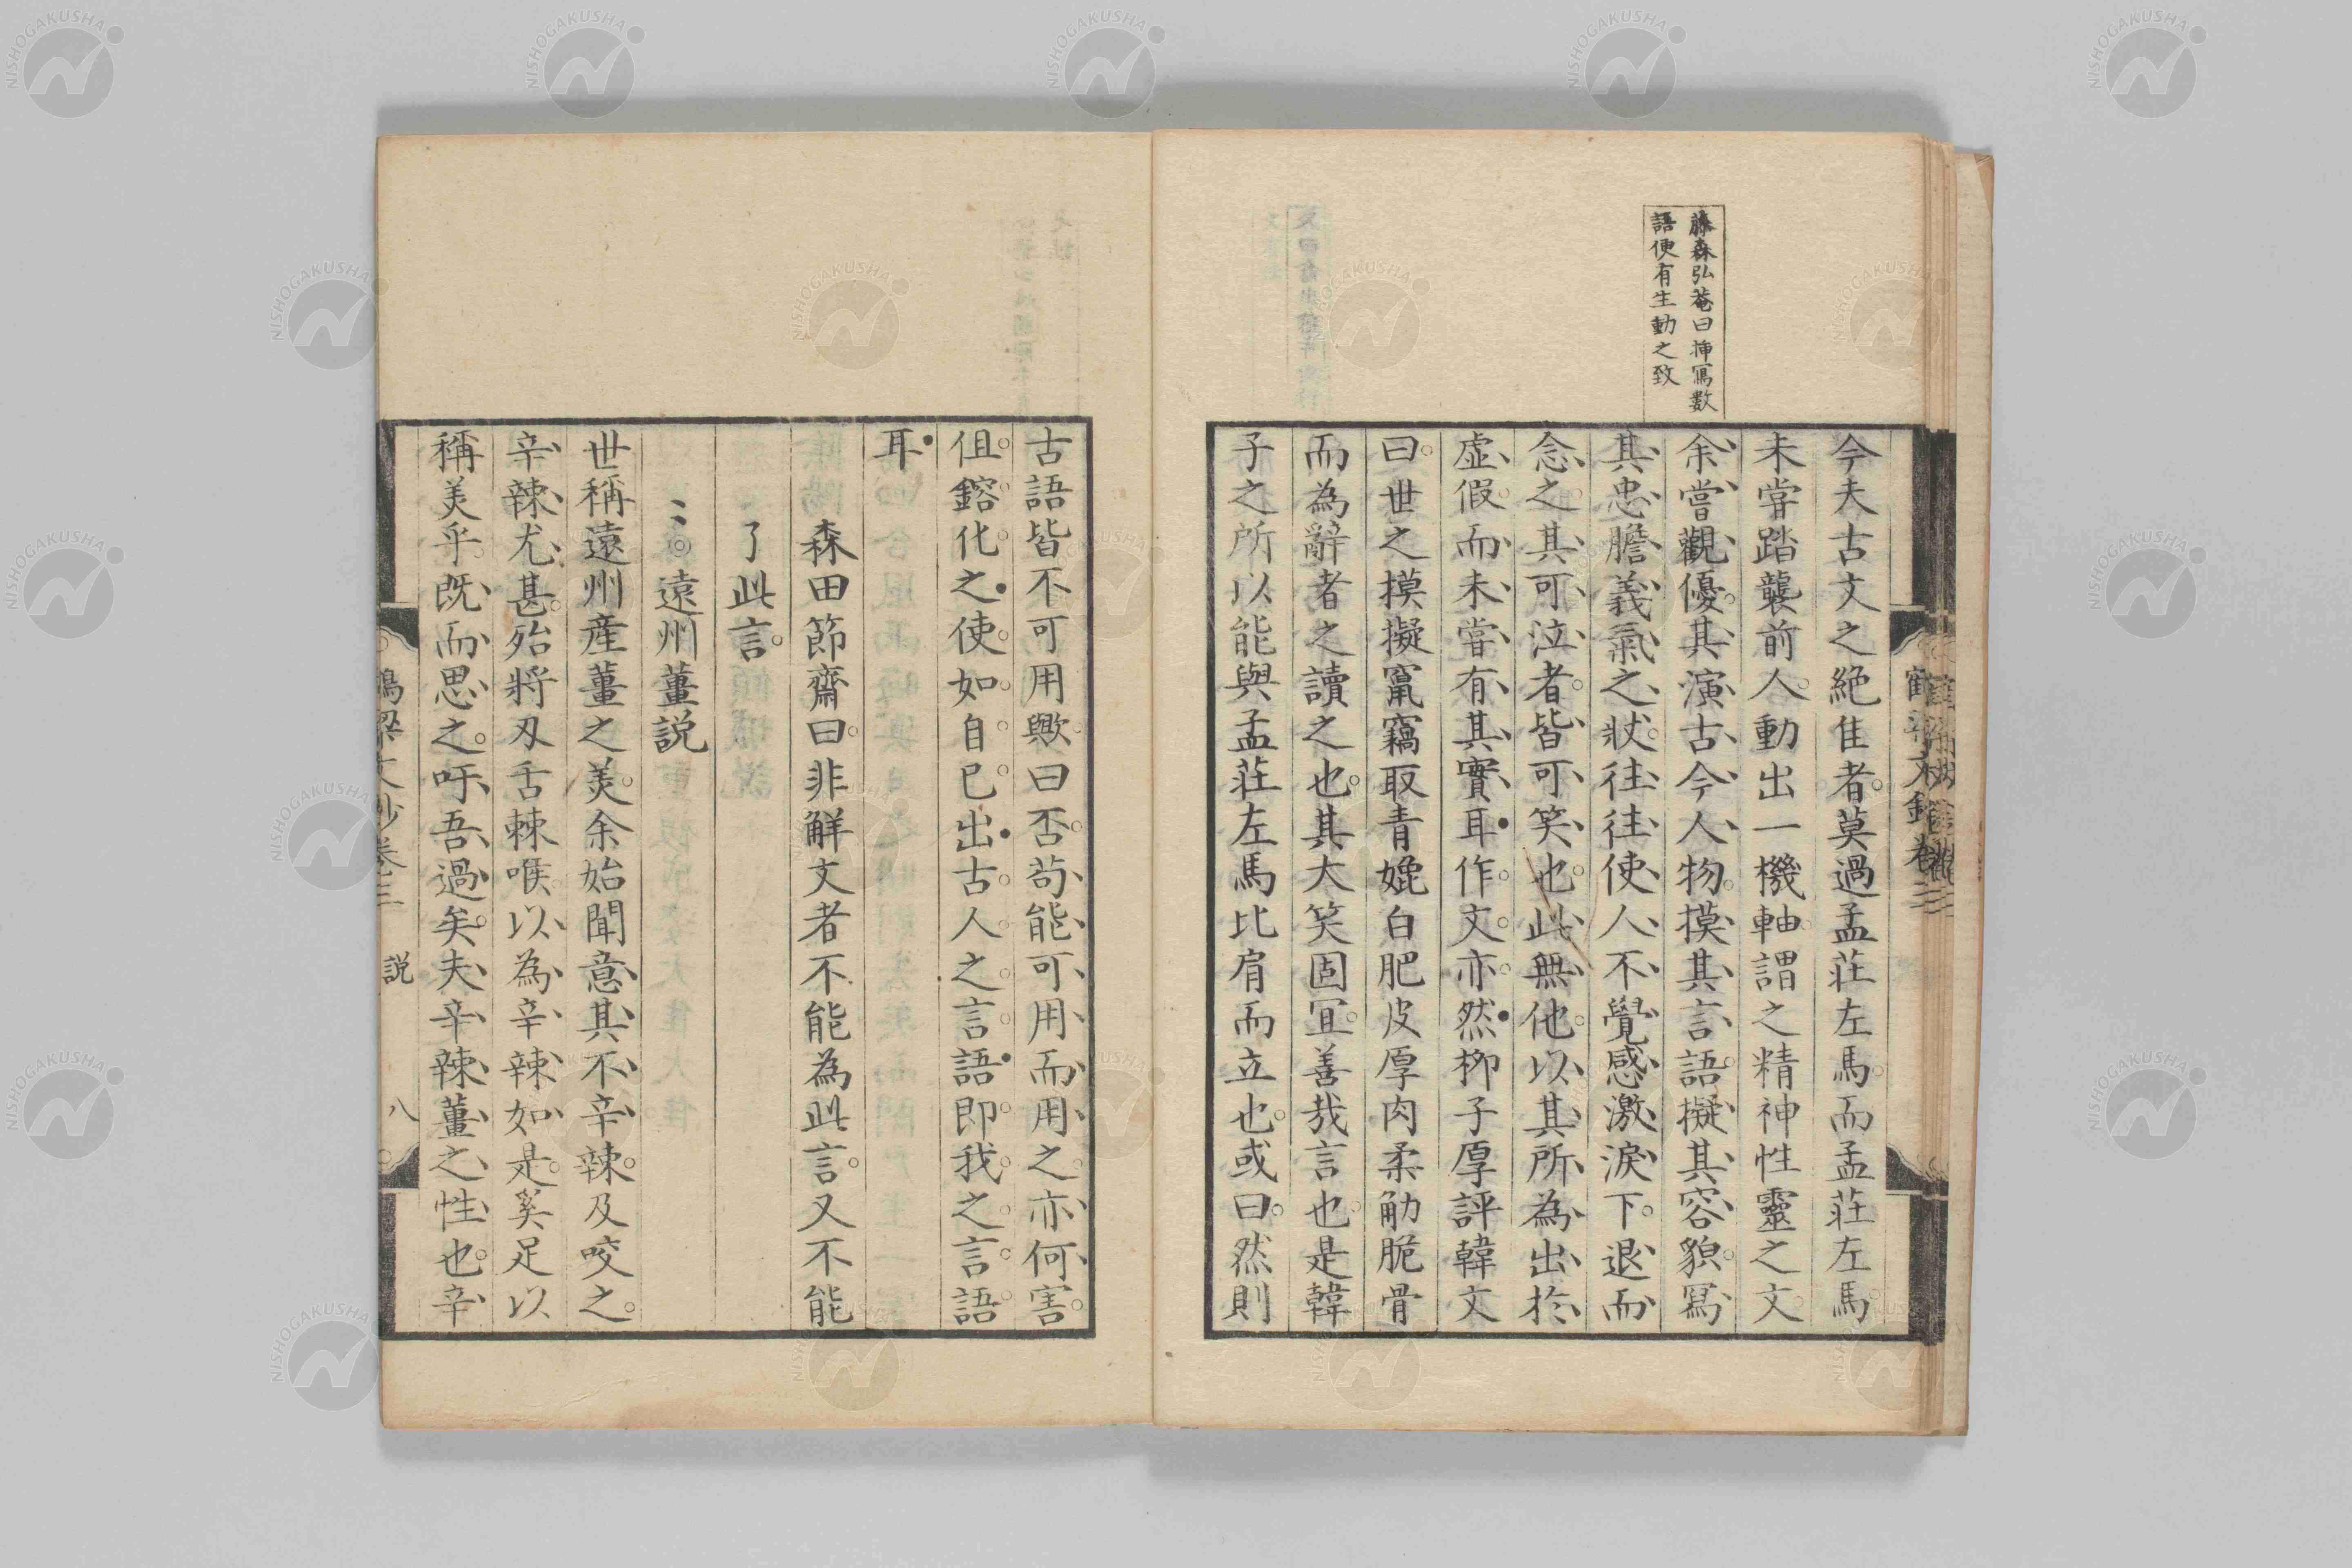 藤森弘菴曰挿冩數
語便有生動之致
今夫古文之絶佳者莫過孟莊左馬而孟莊左馬
未甞踏襲前人動出一機軸謂之精神性靈之文
余嘗觀優其演古今人物摸其言語擬其容貌冩
其忠膽義氣之狀往往使人不覺感激淚下退而
念之其可泣者皆可笑也此無他以其所為出於
虛假而未嘗有其實耳作文亦然柳子厚評韓文
曰世之摸擬竄竊取青媲白肥皮厚肉柔觔脆骨
而為辭者之讀之也其大笑固冝善哉言也是韓
子之所以能與孟莊左馬比肩而立也或曰然則
古語皆不可用歟曰否苟能可用而用之亦何害
但鎔化之使如自己出古人之言語即我之言語
耳
森田節齋曰非解文者不能為此言又不能
了此言
遠州薑説
世稱遠州産薑之美余始聞意其不辛辣及咬之
辛辣尤甚殆將刄舌棘喉以為辛辣如是奚足以
稱美乎既而思之吁吾過矣夫辛辣薑之性也辛
鶴梁文鈔卷三 説 八
NISHOGAKUSHA